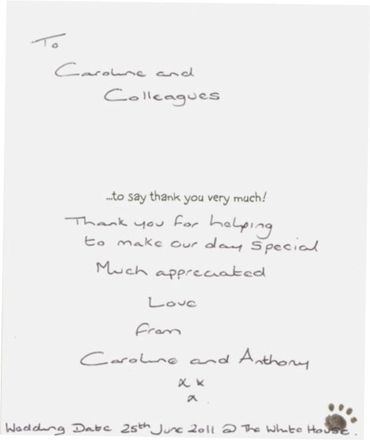 To
Caroline and
Colleagues
...to say thank you very much!
Thank you for helping
to make our day special
Much appreciated
Love
from
Caroline and Anthony
x x
x
Wedding Date 25th June 2011 @ The White House.